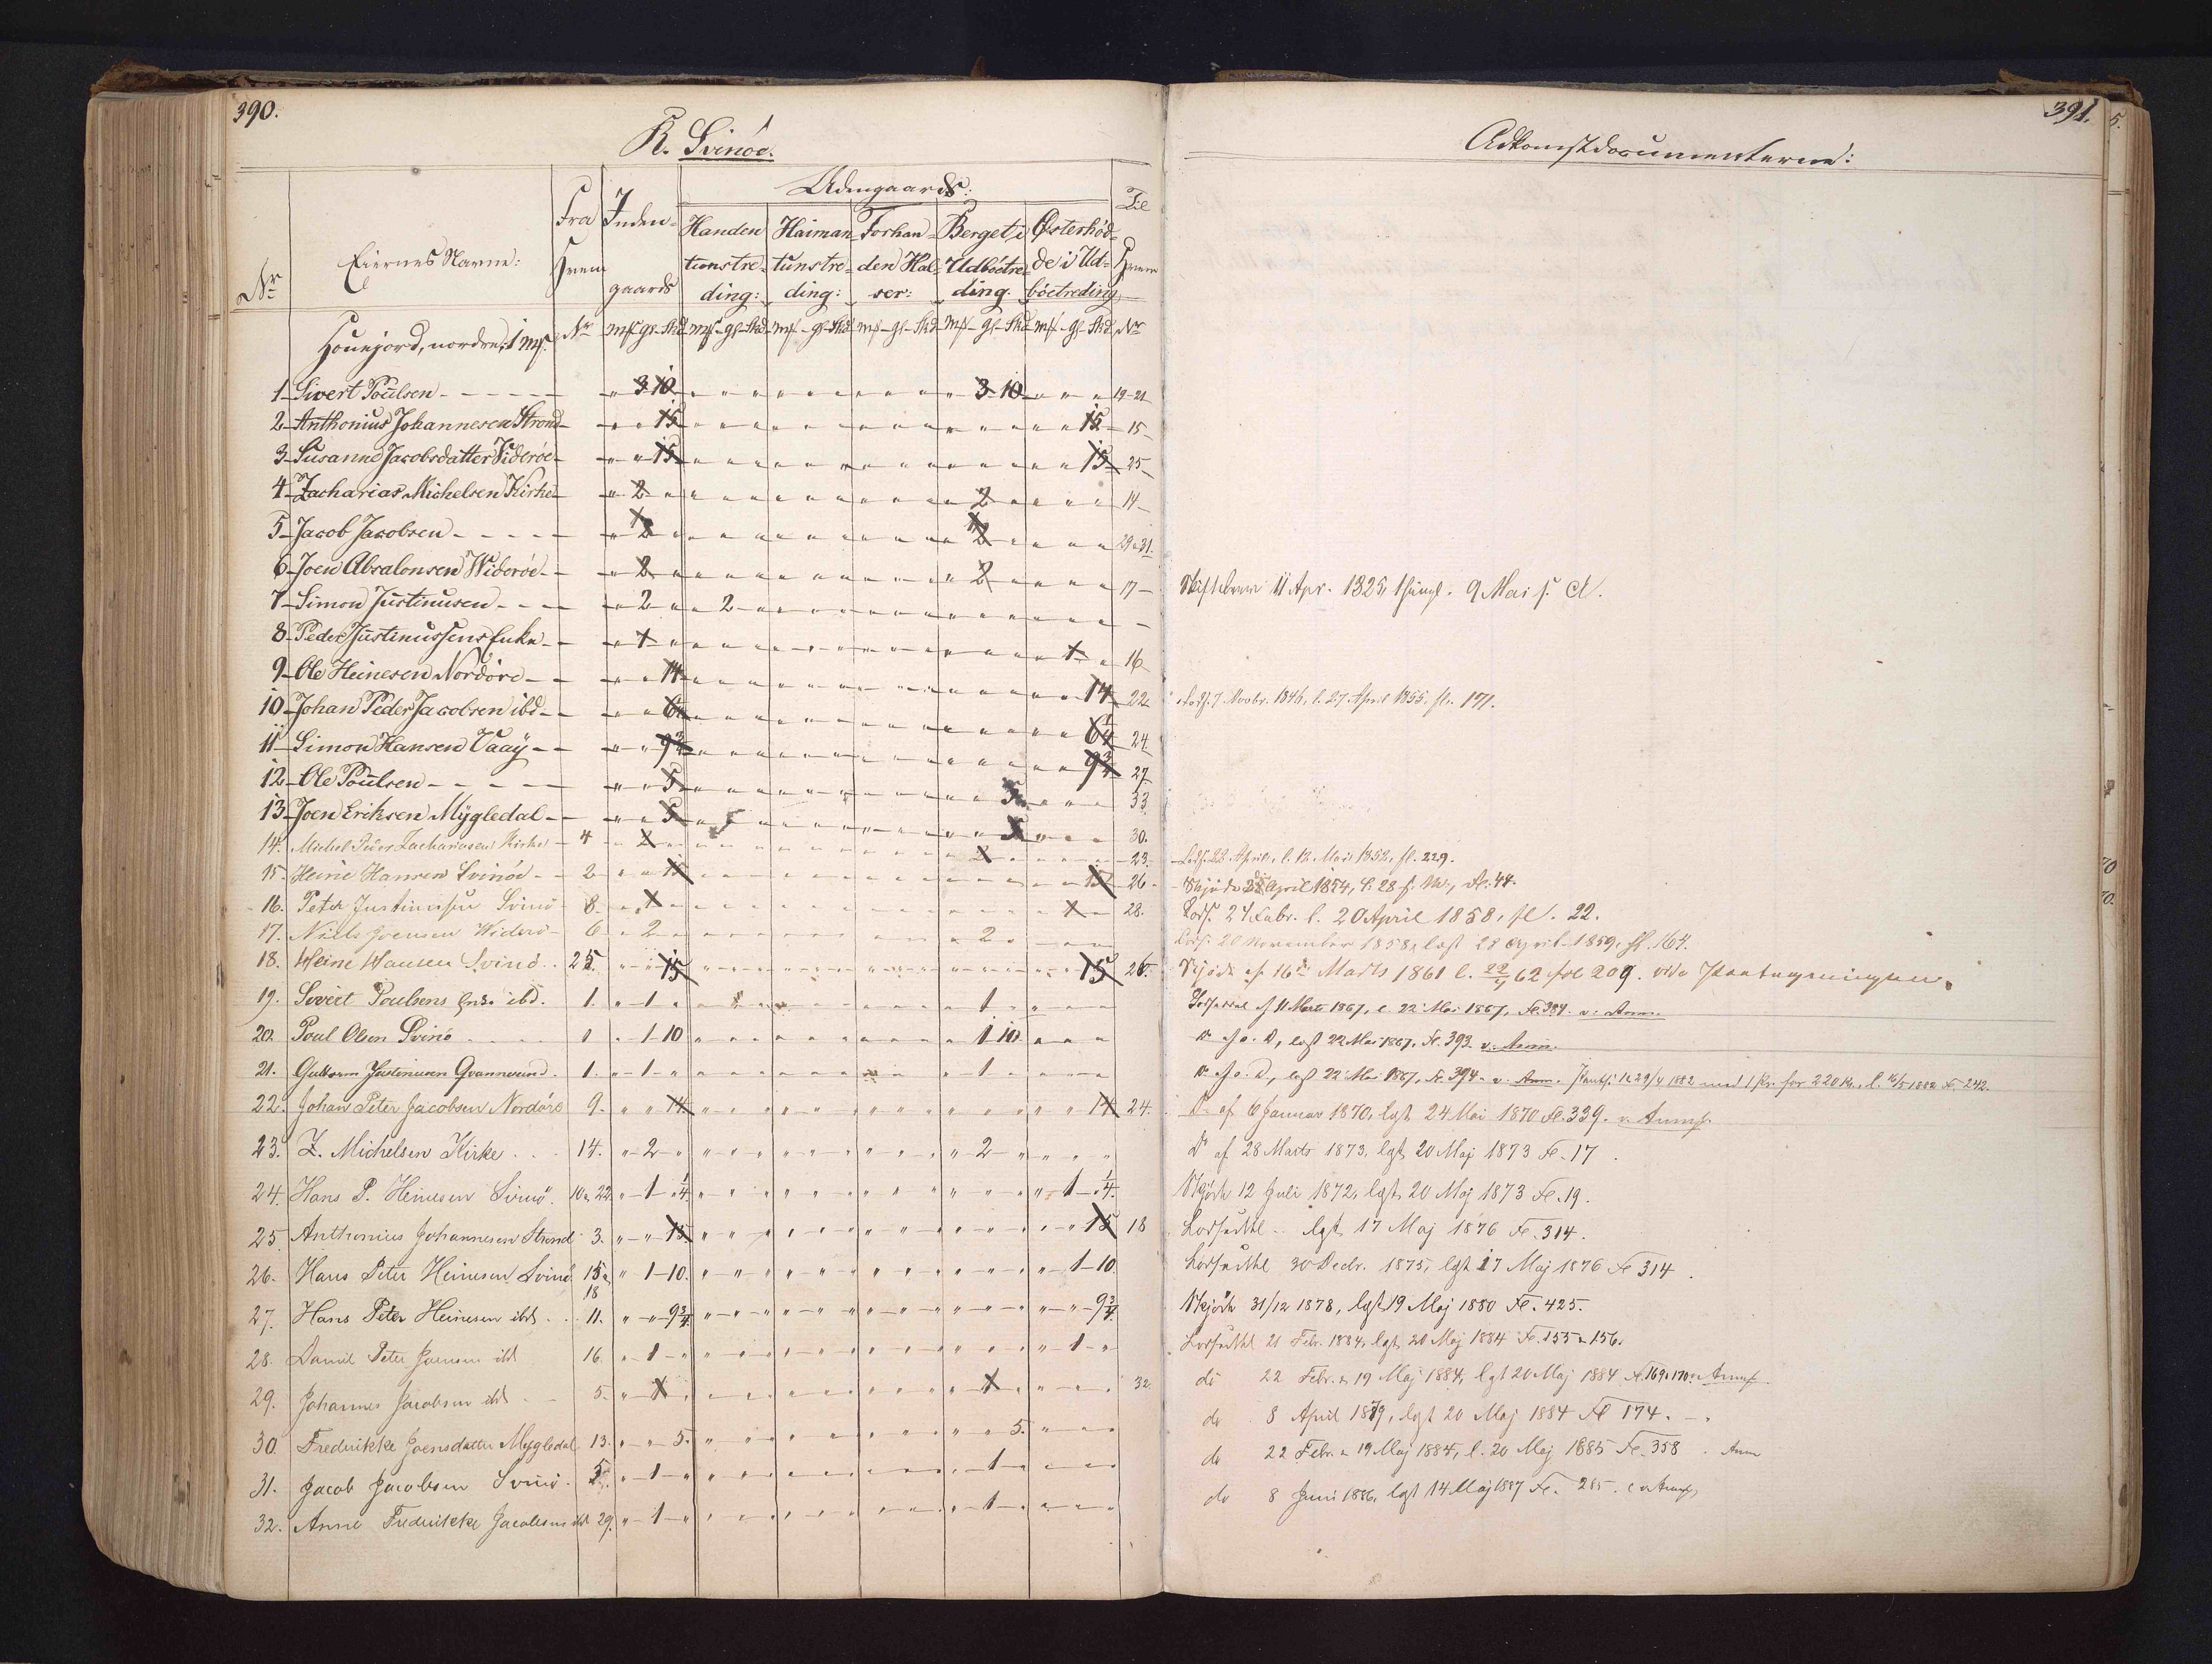 390.
R. Svinöe.
Nr
Eiernes Navne:
Fra Hvem
Inden-gaards
Udengaards:
Til Hvem
Handen tunstreding:
Haimantunstreding:
Forhanden Halser:
Berget i Udbôetreding.
Østerhôdde i Udbôetreding
Houejord, nordre, 1 mk. Nr mk gs. Skd mk-gl-Skd mk-gl-Skd mk-gl-Skd mk-gl-Skd mk-gl-Skd Nr
1 Sivert Poulsen 3 10 3 10 19-21
2 Anthonius Johannesen Strond 15 15 15
3 Susanne Jacobsdatter Viderôe 15 15 25
4 Zacharias Michelsen Kirke 2 2 14
5 Jacob Jacobsen 2 2 29 31.
6 Joen Absalonsen Widerôe 2 2 17
7 Simon Justinusen 2 2
8 Peder Justinussens Enke 1 1 16
9 Ole Heinesen Nordôre 14 14 22
10 Johan Peder Jacobsen ibd 6 1/4 24
11 Simon Hansen Vaaÿ 9 3/4 9 3/4 27
12 Ole Poulsen 5 5 33
13 Joen Eriksen Mÿgledal 5 5 30.
14. Michel Peder Zachariasen Kirke 4 2 2 23.
15. Heine Hansen Svinôe 2 15 15 26
16. Peter Justinussen Svinö 8. 1 1 28.
17. Niels Joensen Widerö 6 2 2
18. Heine Hansen Svinö 25. 15 15 26.
19. Sivert Poulsens Enke ibd. 1. 1 1
20. Poul Olsen Svinö 1 1 10 1 10
21. Guttorm Justinusen Qvannesund. 1. 1 1
22. Johan Peter Jacobsen Nordôre 9. 14 14 24.
23. Z. Michelsen Kirke 14. 2 2
24. Hans P. Heinesen Svinö. 10 & 22. 1 1/4 1 1/4
25. Anthonius Johannesen Strond 3. 15 15 18
26. Hans Peter Heinesen Svinö 15 & 18 1 10. 1 10
27. Hans Peter Heinesen ibd. 11. 9 3/4 9 3/4
28. Daniel Peter Joensen ibd 16. 1 1
29. Johannes Jacobsen ibd 5. 1 1 32
30. Fredrikke Joensdatter Mygledal 13. 5. 5.
31. Jacob Jacobsen Svinö. 5. 1 1
32. Anne Fredrikke Jacobsens ibd 29. 1 1
391.
Adkomstdocumenterne:
11 Apr. 1825, thingl. 9 Mai s. A.
7. Novbr. 1846, l. 27. April 1855, fl. 171.
22 April, l. 12. Mai 1852, fl. 229.
Skjöde April 1854, l. 28 s. M., fl. 44.
Lods. 24 Febr. l. 20 April 1858, fl. 22.
Lods. 20 November 1858, læst 28 April 1859, fl. 164.
Skjöde af 16de Marts 1861 l. 22/5 62 fol 209. vide Paategningen.
11 Marts 1867, l. 22 Mai 1867, Fl. 384. v. Anm.
Do af s. D, læst 22 Mai 1867, Fl. 393. v. Anm.
Do af s. D, læst 22 Mai 1867, Fl. 394. v. Anm. 29/4 1882 med 1 Pr. for 220 Kr., l. 16/5 1882 Fl. 242.
Do af 6 Januar 1870, lgt 24 Mai 1870 Fl. 339. v. Anm.
Do af 28 Marts 1873, lgt 20 Maj 1873 Fl. 17.
Skjöde 12 Juli 1872, lgt 20 Maj 1873 Fl. 19.
Lodseddel lgt 17 Maj 1876 Fl. 314.
Lodseddel 30 Decbr. 1875, lgt 17 Maj 1876 Fl 314.
Skjöde 31/12 1878, lgt 19 Maj 1880 Fl. 425.
Lodseddel 21 Febr. 1884, lgt 20 Maj 1884 Fl. 155 & 156.
do 22 Febr. & 19 Maj 1884, lgt 20 Maj 1884 Fl. 169 & 170. v. Anm.
do 8 April 1879, lgt 20 Maj 1884 Fl 174.
do 22 Febr. & 19 Maj 1884, l. 20 Maj 1885 Fl. 358. Anm
do 8 Juni 1886, lgt 14 Maj 1887 Fl. 285. v. Anm.